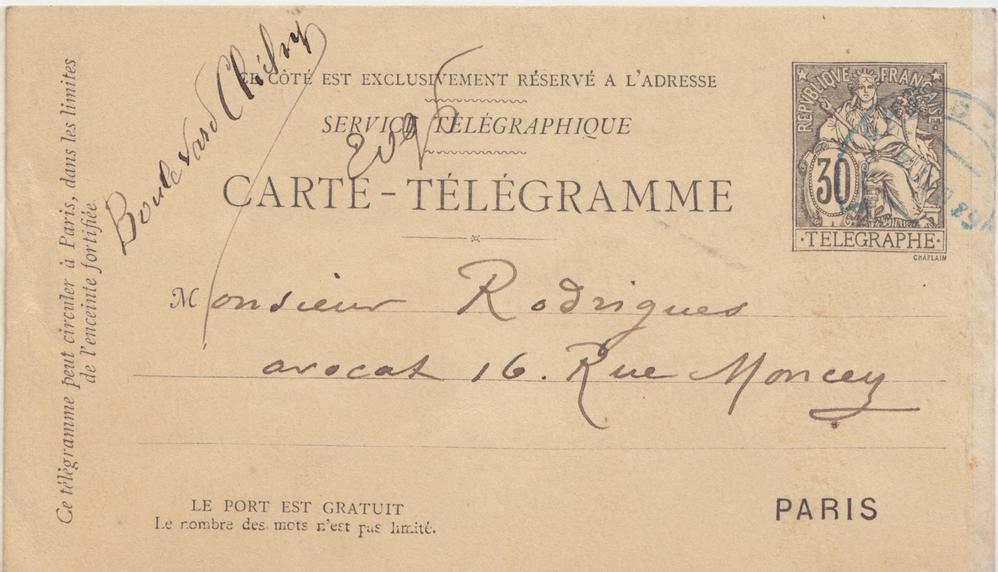 CE CÔTÉ EST EXCLUSIVEMENT RÉSERVÉ A L'ADRESSE
SERVICE TÉLÉGRAPHIQUE
CARTE-TÉLÉGRAMME
Boulevard Clichy
REPUBLIQUE FRANÇAISE
30
·TELEGRAPHE·
CHAPLAIN
Monsieur Rodrigues
avocat 16. Rue Moncey
LE PORT EST GRATUIT
Le nombre des mots n'est pas limité.
PARIS
Ce télégramme peut circuler à Paris, dans les limites
de l'enceinte fortifiée.